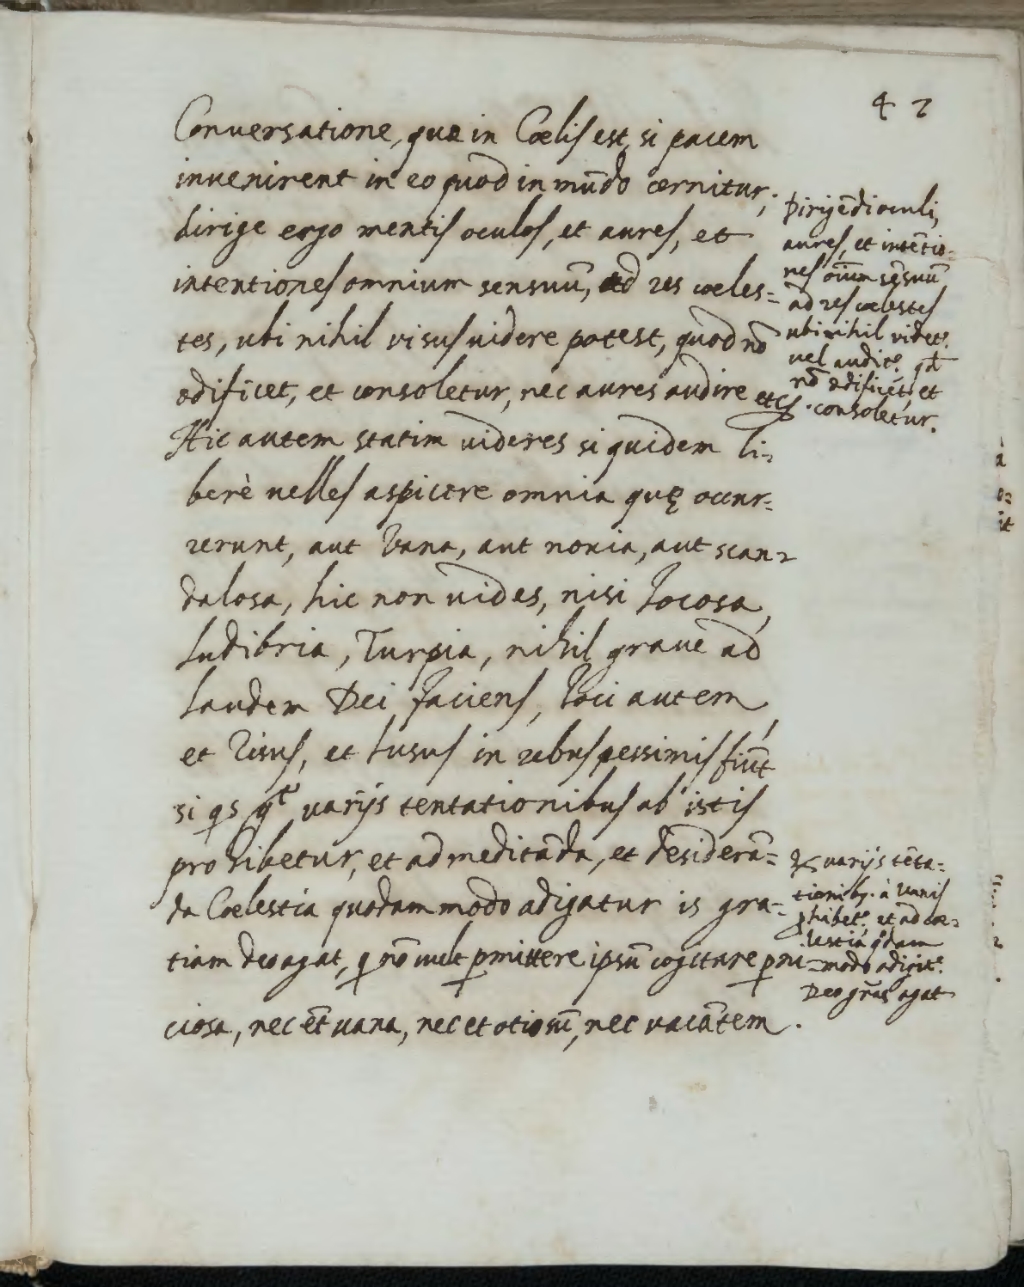 42
Conversatione, quæ in Cœlis est, si pacem
invenirent in eo quod in mũdo cernitur,
dirige ergo mentis oculos, et aures, et
intentiones omnium sensuũ, ad res cœles=
tes, ubi nihil visus videre potest, quod nõ
ædificet, et consoletur, nec aures audire etc.
Hic autem statim videres si quidem li=
berè velles aspicere omnia quę occur=
rerunt, aut vana, aut noxia, aut scan=
dalosa, hic non vides, nisi Jocosa,
ludibria, Turpia, nihil grave ad
laudem Dei faciens, Joci autem,
et Risus, et lusus in rebus pessimis fiũt
si qs varijs tentationibus ab istis
prohibetur, et ad meditãda, et desiderã=
da Cœlestia quodammodo adigatur is gra=
tiam deo agat, q nõ vult pmittere ipsũ cogitare pni
ciosa, nec et̃ vana, nec et otiosũ, nec vacãtem.
Dirigẽdi oculi,
aures, et intẽtio=
nes oĩum sẽsuũ
ad res cœlestes
ubi nihil videt.
vel audit. qd
nõ ædificet, et
consoletur.
varijs tẽta=
tionib9. à vanis
phibet. et ad cœ=
lestia qdam
=modo adigit.
Deo gr̃as agat